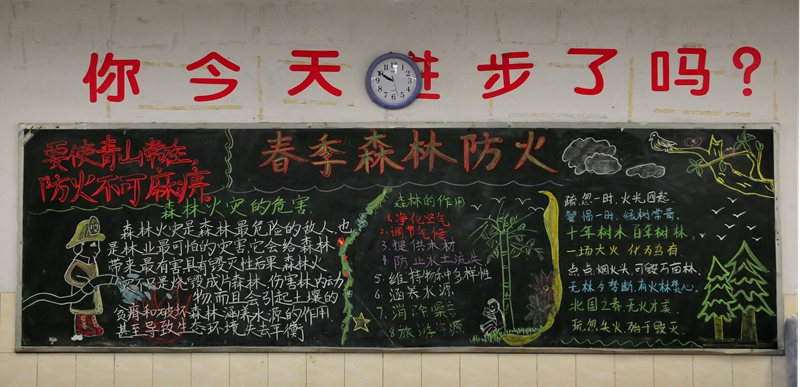 你今天进步了吗?
要使青山常在,
防火不可麻痹
春季森林防火
森林火灾的危害
森林火灾是森林最危险的敌人,也
是林业最可怕的灾害,它会给森林
带来最有害具有毁灭性后果.森林火
灾不只是烧毁成片森林,伤害林内动
物,而且会引起土壤的
贫瘠和破坏森林涵养水源的作用,
甚至导致生态环境失去平衡
森林的作用
1.净化空气
2.调节气候
3.提供木材
4.防止水土流失
5.维持物种多样性
6.涵养水源
7.消除噪音
8.旅游资源
疏忽一时,火光四起.
警惕一时,绿树常青.
十年树木 百年树林
一场大火 化为乌有
点点烟火头,可毁万亩林.
无林令考断,有火林卷心.
北国之春,无火才美.
疏忽失火 始于毁灭